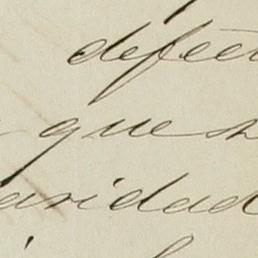 defect
que s
aridad